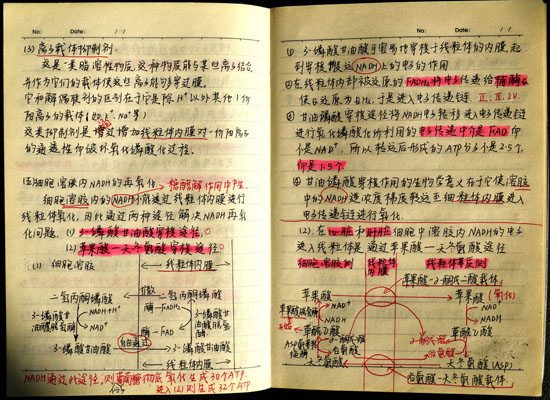 No:
Date: / /
(3) 离子载体抑制剂.
这是一类脂溶性物质,这种物质能与某些离子结合,
并作为它们的载体使这些离子能够穿过膜.
它和解偶联剂的区别在于它是除H⁺以外其他1价
阳离子的载体(如K⁺、Na⁺等)
这类抑制剂是通过增加线粒体内膜对一价阳离子
的通透性而破坏氧化磷酸化过程.
细胞溶胶内NADH的再氧化. 糖酵解作用中产生.
细胞溶胶内的NADH不能透过线粒体内膜进行
线粒体氧化,因此通过两种途径解决NADH再氧
化问题.(1) 3-磷酸甘油酸穿梭途径.
(2)苹果酸-天冬氨酸穿梭途径
(1) 细胞溶胶 线粒体内膜
二羟丙酮磷酸 扩散 二羟丙酮磷酸
NADH+H⁺ 酶-FADH₂
3-磷酸甘油脱氢酶 3-磷酸甘油脱氢酶
NAD⁺ 酶-FAD
3-磷酸甘油 自由通过 3-磷酸甘油
线粒体内膜
NADH通过此途径,则葡萄糖彻底氧化生成30个ATP.
进入(2)则生成32个ATP
No:
Date: / /
① 3-磷酸甘油酸可容易地穿梭于线粒体的内膜,起
到穿梭搬运NADH上的电子的作用.
②在线粒体内部被还原的FADH₂将电子传递给辅酶Q
使Q还原为QH₂.于是进入电子传递链.
③甘油磷酸穿梭途径将NADH电子转移进入电子传递链
进行氧化磷酸化所利用的电子传递中介是FAD而
不是NAD⁺,所以转运后形成的ATP分子不是2.5个,
而是1.5个.
④甘油磷酸穿梭作用的生物学意义在于它使溶胶
中的NADH逆浓度梯度转运至线粒体内膜进入
电子传递链进行氧化.
(2).在心脏和肝脏细胞中溶胶内NADH的电子
进入线粒体是通过苹果酸-天冬氨酸途径
细胞溶胶侧 线粒体内膜 线粒体基质侧
苹果酸-α-酮戊二酸载体.
苹果酸 苹果酸 (氧化)
NAD⁺ NAD⁺
NADH NADH
草酰乙酸 草酰乙酸
α-酮戊二酸
谷氨酸
天冬氨酸 天冬氨酸(ASP)
谷氨酸-天冬氨酸载体.